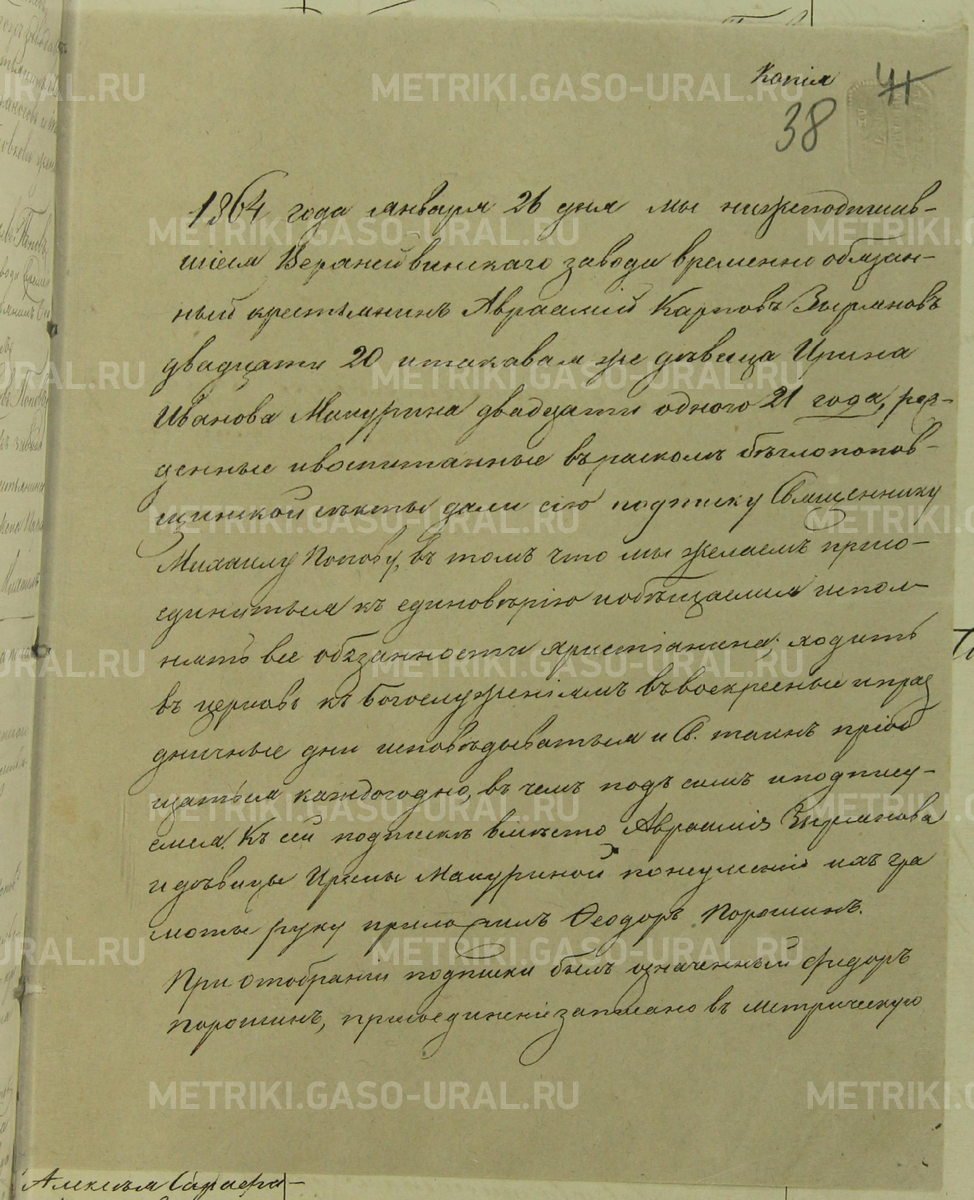 Копія
41
38
1864 года января 26 дня мы нижеподписав-
шіеся Верхнейвинскаго завода временно обязан-
ный крестьянинъ Авраамій Карповъ Зыряновъ
двадцати 20 и такавая же дѣвица Ирина
Иванова Макурина двадцати одного 21 года, рож-
денные и воспитанные въ расколѣ бѣглопопов-
щинской секты дали сію подписку Священнику
Михаилу Попову, въ томъ что мы желаемъ присо-
единиться къ единовѣрію и обѣщаемся испол-
нять все обязанности христіанина; ходить
въ церковь къ Богослуженіямъ въ воскресные и праз
дничные дни исповѣдываться и Св. таинъ пріоб
щаться каждогодно, въ чемъ подъ симъ и подпису-
емся. Къ сей подпискѣ вмѣсто Авраамія Зырянова
и дѣвицы Ирины Макуриной по неумѣнію ихъ гра
моты руку приложилъ Феодоръ Порошинъ.
При отобраніи подписки былъ означенный Федоръ
Порошинъ, присоединеніе записано въ метрическую
Алексѣя Сарафа-
METRIKI.GASO-URAL.RU